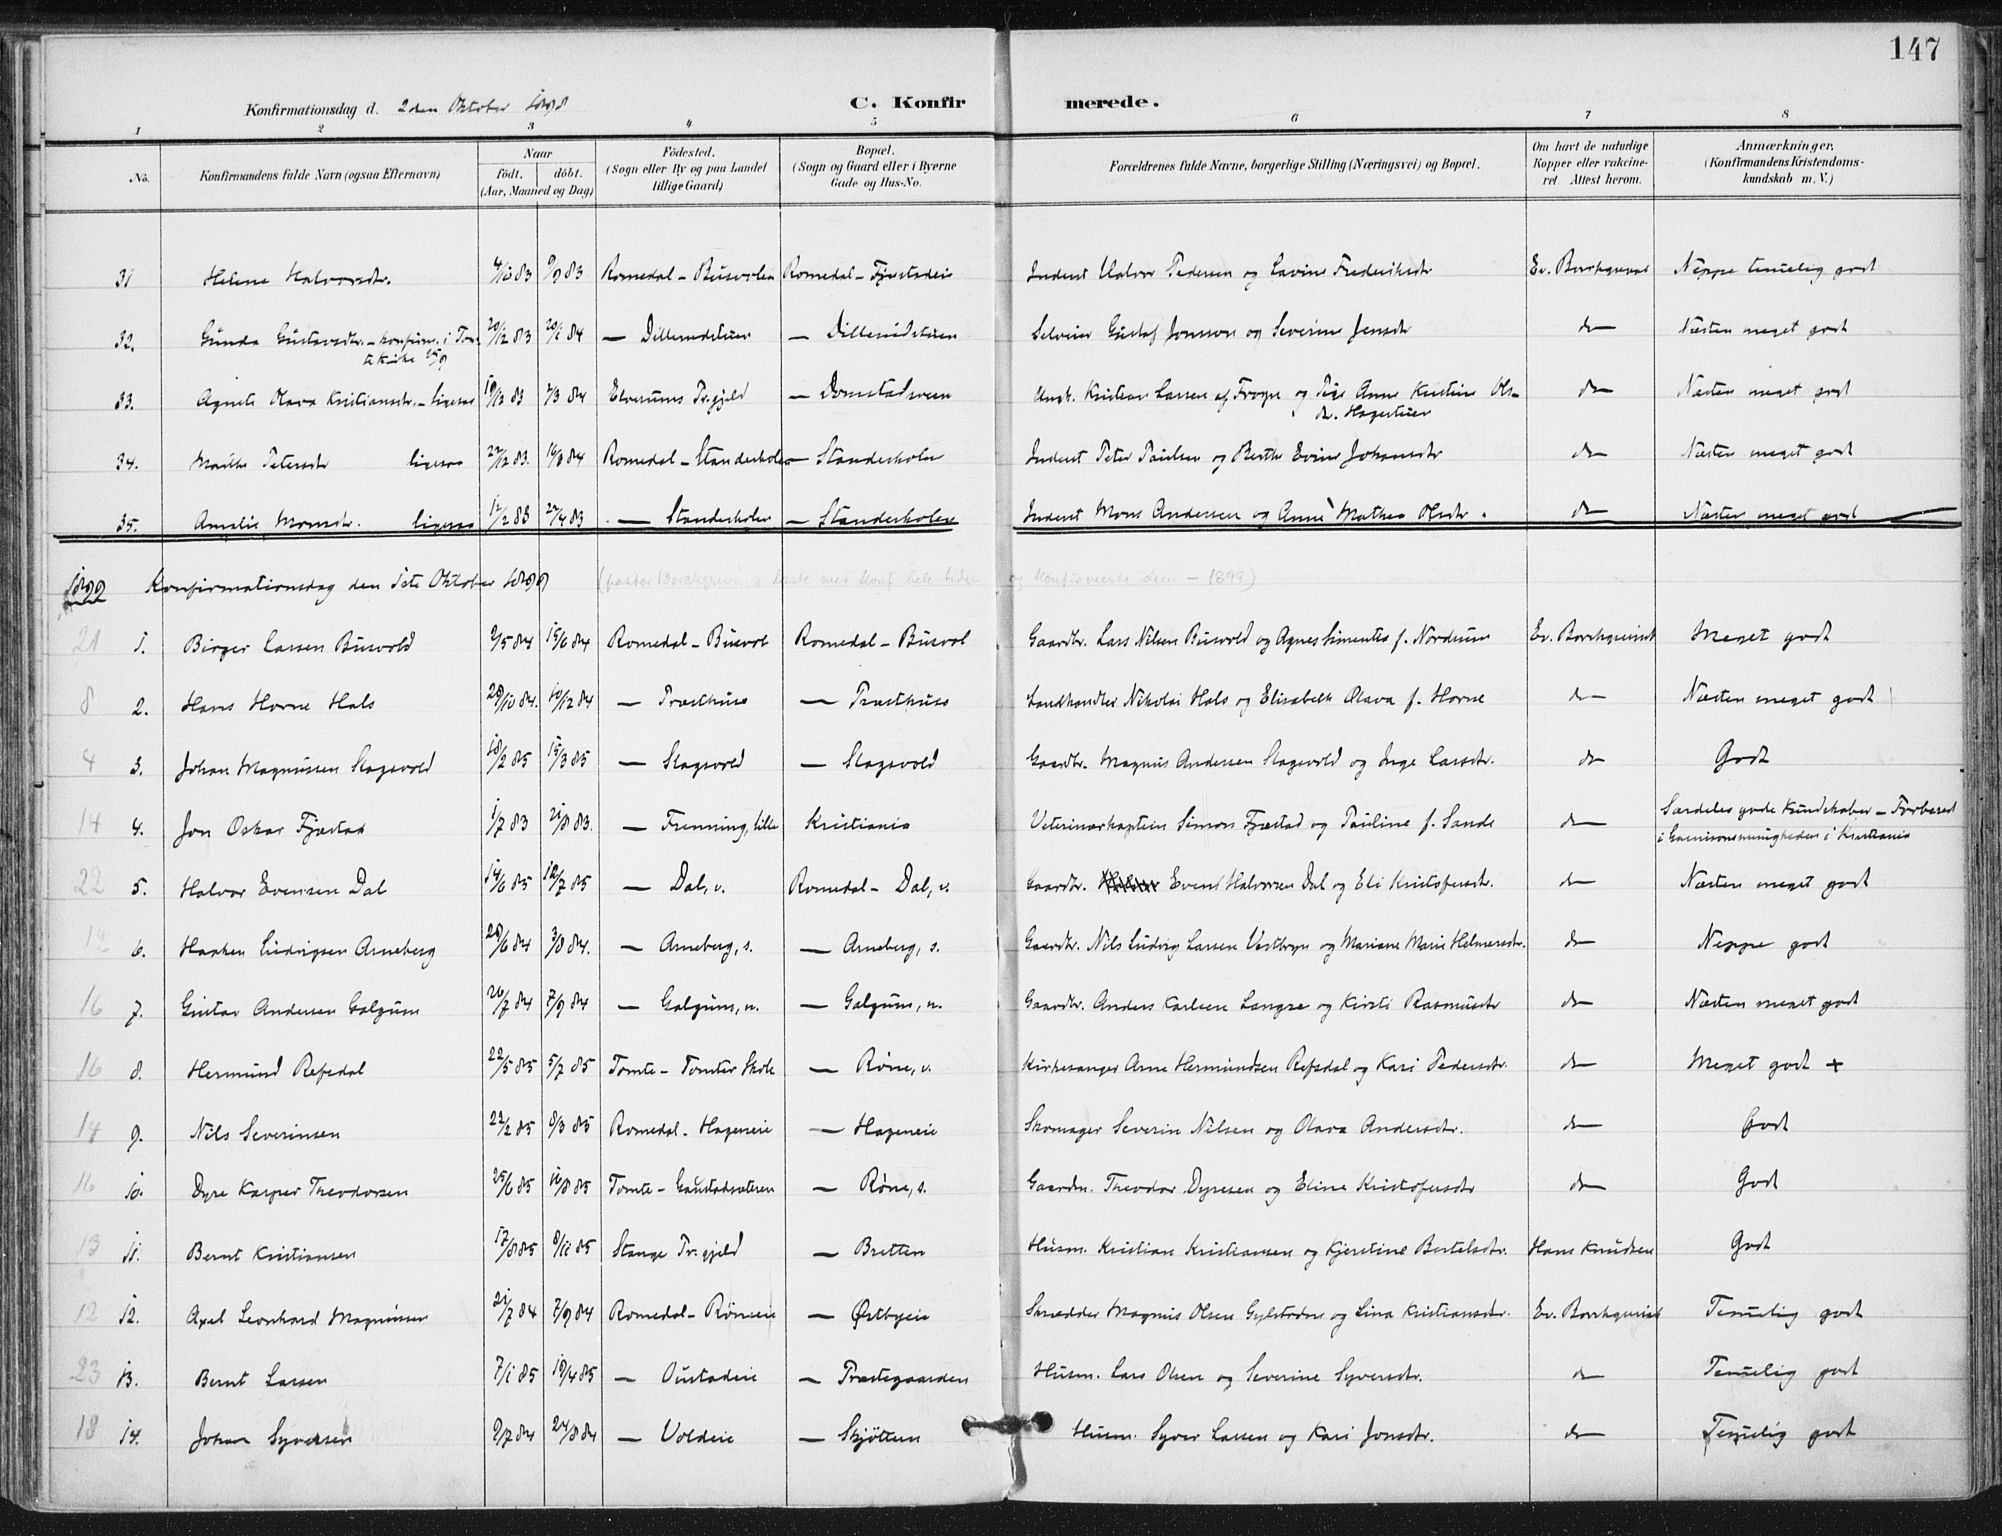 147
Konfirmationsdag d. 2den Oktober 1898
C. Konfirmerede.
1 2 3 4 5 6 7 8
No.
Konfirmandens fulde Navn (ogsaa Efternavn)
Naar
født. døbt.
(Aar, Maaned og Dag)
Fødested.
(Sogn eller By og paa Landet
tillige Gaard)
Bopæl.
(Sogn og Gaard eller i Byerne
Gade og Hus-No.
Forældrenes fulde Navne, borgerlige Stilling (Næringsvei) og Bopæl.
Om havt de naturlige
Kopper eller vakcine-
ret. Attest herom.
Anmærkninger.
(Konfirmandens Kristendoms-
kundskab m. V.)
31 Helene Halvorsdtr. 4/10 83 9/9 83 Romedal – Romedal – Fjæstadeie Inderst Halvor Pedersen og Lavine Frederiksdtr Ev. Borchgrevink Neppe temelig godt
32. Gunda Gustavsdtr. – konfirm. i Tom-
te Kirke 25/9 20/12 83 20/1 84 — Dillerudstuen — Dillerudstuen Selveier Gustaf Jonsson og Severine Jensdtr do Næsten meget godt
33. Agnete Olava Kristiansdtr. – ligesaa 19/12 83 2/3 84 Elverums Pr.gjeld — Domstadsveen Ungk. Kristian Larsen af Frogn og Pige Anne Kristine Ols-
dtr. Hagestuen do Næsten meget godt
34. Petersdtr ligesaa 22/12 83. 16/3 84 Romedal – Standerholen — Standerholen Inderst Peter Paulsen og Berthe Evine Johansdtr do Næsten meget godt
35. Amalie Monsdtr. ligesaa 12/2 83 22/4 83 — Standerholen — Standerholen Inderst Mons Andersen og Anne Mathea Olsdtr. do Næsten meget godt
1899 Konfirmationsdag den 1ste Oktober 1899 (pastor Borchgrevink læste med konf hele tiden og konfirmerte dem – 1899)
21 1. Birger Larsen Busvold 9/5 84 15/6 84 Romedal – Busvol Romedal – Busvol Gaardbr. Lars Nilsen Busvold og Agnes Simentis f. Nordrum Ev. Borchgrevink Meget godt
8 2. Hans Horne Hals 28/10 84. 10/12 84 — Præsthus — Præsthus Landhandler Nikolai Hals og Elisabeth Olava f. Horne do Næsten meget godt
4 3. Johan Magnussen Slagsvold 18/2 85 15/3 85 — Slagsvold — Slagsvold Gaardbr. Magnus Andersen Slagsvold og Inge Larsdtr. do Godt
14 4. Jon Oskar Fjæstad 1/7 83 21/8 83. — Frenning, lille Kristiania Veterinærkaptein Simon Fjæstad og Pauline f. Sande do Særdeles gode Kundskaber – Forberedt
i Garnisonsmenigheden i Kristiania
22 5. Halvor Evensen Dal 14/6 85 12/7 85 — Dal, v. Romedal – Dal, v. Gaardbr. Even Halvorsen Dal og Eli Kristofersdtr. do Næsten meget godt
12 6. Haaken Ludvigsen Arneberg 28/6 84 3/8 84. — Arneberg, s. — Arneberg, s. Gaardbr. Nils Ludvig Larsen Vestbyn og Mariane Marie Helmersdtr. do Neppe godt
16 7. Gustav Andersen Galgum 26/7 84 7/9 84 — Galgum, n. — Galgum, n. Gaardbr. Anders Karlsen Langse og Kirsti Rasmusdtr do Næsten meget godt
16 8. Hermund Refsdal 22/5 85 5/7 85 Tomte – Tomter Skole — Røne, v. Kirkesanger Arne Hermundsen Refsdal og Kari Pedersdtr. do Meget godt +
14 9. Nils Severinsen 22/2 85 8/3 85 Romedal – Hageneie — Hageneie Skomager Severin Nilsen og Olava Andersdtr. do Godt
16 10. Dyre Kasper Theodorsen 25/6 85 16/8 85 Tomte – Gaustadsæteren — Røne, s. Gaardm. Theodor Dyresen og Eline Kristofersdtr do Godt
13 11. Bernt Kristiansen 17/8 85 8/11 85 Stange Pr.gjeld — Bretten Husm. Kristian Kristiansen og Kjerstine Bertelsdtr. Hans Knudsen Godt
12 12. Axel Leonhard Magnussen 21/7 84 7/9 84 Romedal – Røneeie — Østbyeie Skrædder Magnus Olsen og Lina Kristiansdtr. Ev. Borchgrevink Temelig godt
23 13. Bernt Larsen 7/1 85 19/4 85 — Oustadeie — Præstegaarden Husm. Lars Olsen og Severine Syversdtr. do Temelig godt
18 14. Johan Syversen 9/7 84 24/8 84 — Voldeie — Skjøttun Husm. Syver Larsen og Kari Jonsdtr. do Temelig godt